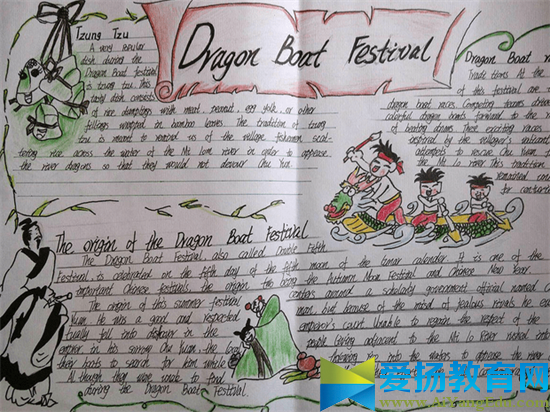 Dragon Boat Festival
Tzung Tzu
A very popular
dish during the
Dragon Boat festival
is tzung tzu. This
tasty dish consists
of rice dumplings with meat, peanut, egg yolk, or other
fillings wrapped in bamboo leaves. The tradition of tzung
tzu is meant to remind us of the village fishermen scat-
tering rice across the water of the Mi Lom river in order to appease
the river dragons so that they would not devour Chu Yuan.
Dragon Boat
Traditions At the
of this festival are
dragon boat races. Competing teams drive
colorful dragon boats forward to the
of beating drums These exciting races
inspired by the villager's valiant
attempts to rescue Chu Yuan
the Mi Lo River This tradition
remained
for
The origin of the Dragon Boat Festival
The Dragon Boat Festival, also called Double Fifth
Festival is celebrated on the fifth day of the fifth moon of the lunar calendar. It is one of the
important Chinese festivals, the origin the being the Autumn Moon Festival and Chinese New Year.
The origin of this summer festival centers around a scholarly government official named
Yuan He was a good and respected man, but because of the misd of jealous rivals he
fell into disfavor in the emperor's court Unable to regain the respect of the
emperor in his sorrow Chu Yuan people living adjacent to the Mi Lo River rushed into
their boats to search for him while into the waters to appease the river
Although they were unable to find
during the Dragon Boat Festival.
爱扬教育网